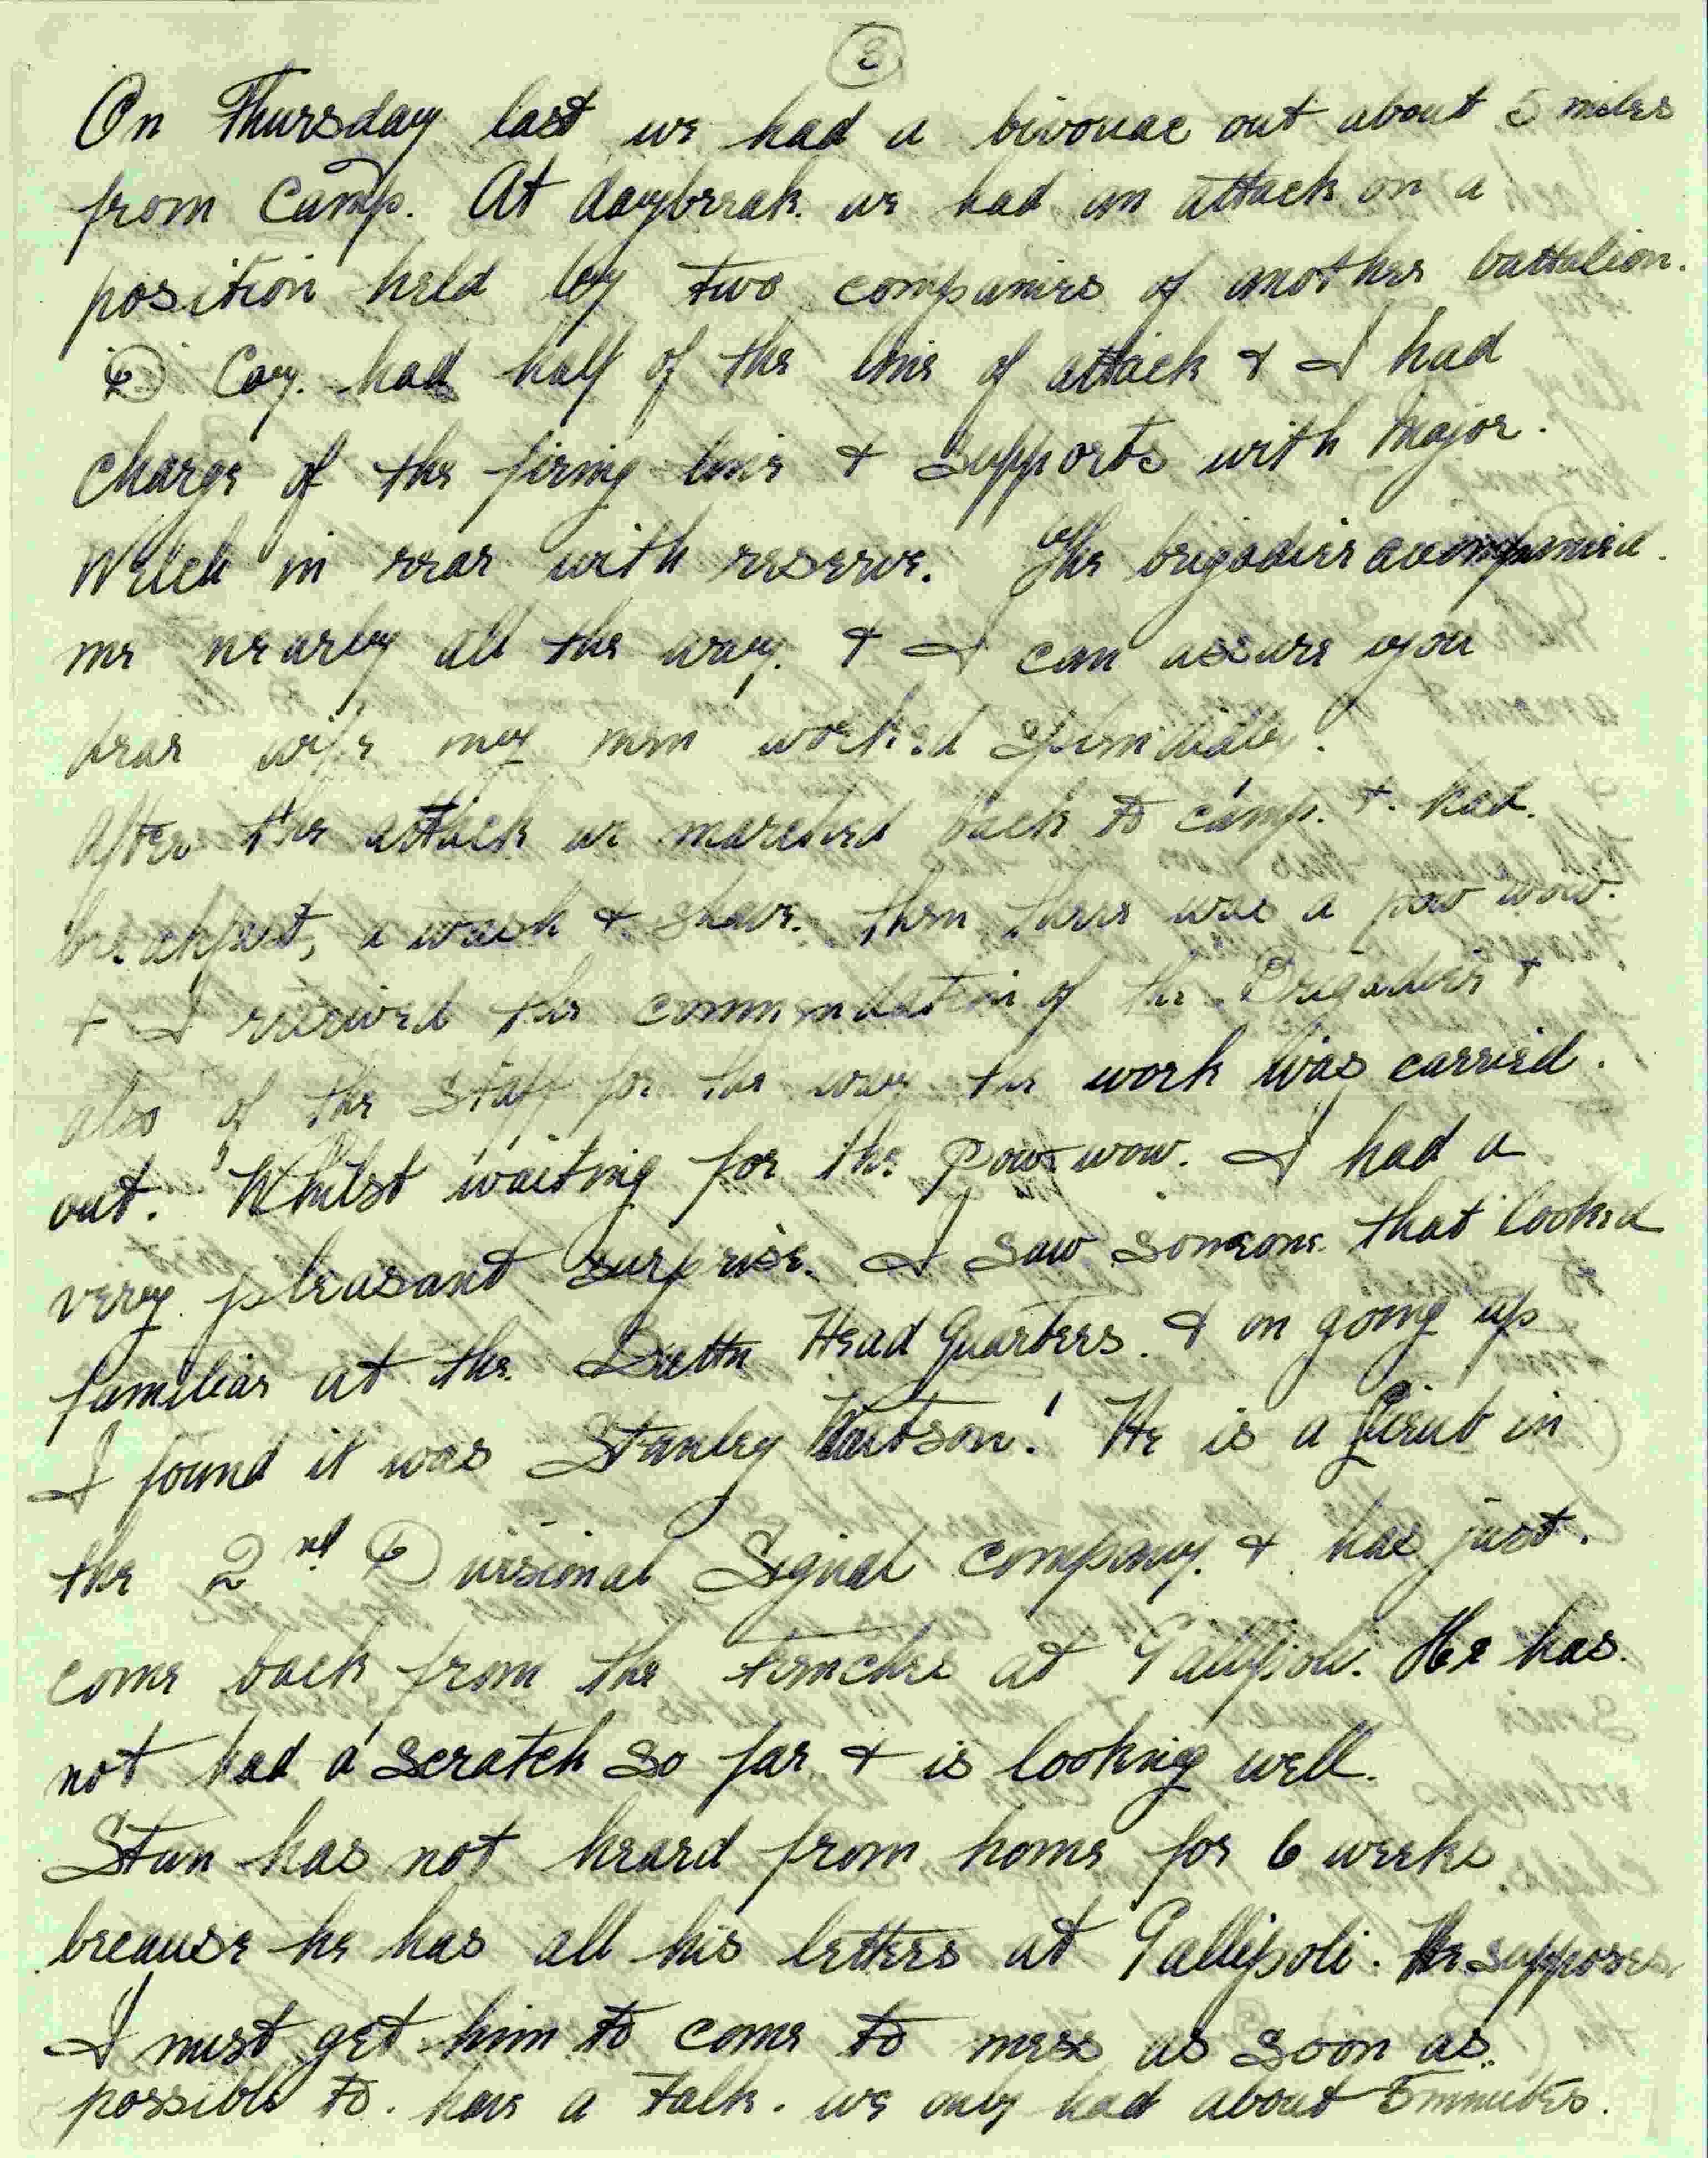 3
On Thursday last we had a bivouac out about 5 miles
from Camp. At daybreak we had an attack on a
position held by two companies of another battalion.
D Coy. had half of the line of attack & I had
charge of the firing line & supports with Major.
Welch in rear with reserve. The brigadier accompanied.
me nearly all the way. & I can assure you
dear wife my men worked splendidly.
After the attack we marched back to camp. & had.
breakfast, a wash & shave. then there was a pow wow.
& I received the commendation of the Brigadier &
also of the Staff for the way the work was carried.
out. Whilst waiting for the pow wow. I had a
very pleasant surprise. I saw someone that looked
familiar at the. Battn Head Quarters. & on going up
I found it was Stanley Watson! He is a Lieut in
the 2nd Divisional Signal company. & has just.
come back from the trenches at Gallipoli. He has.
not had a scratch so far & is looking well.
Stan has not heard from home for 6 weeks
because he has all his letters at Gallipoli. He supposes.
I must get him to come to mess as soon as.
possible to. have a talk. we only had about 5 minutes.